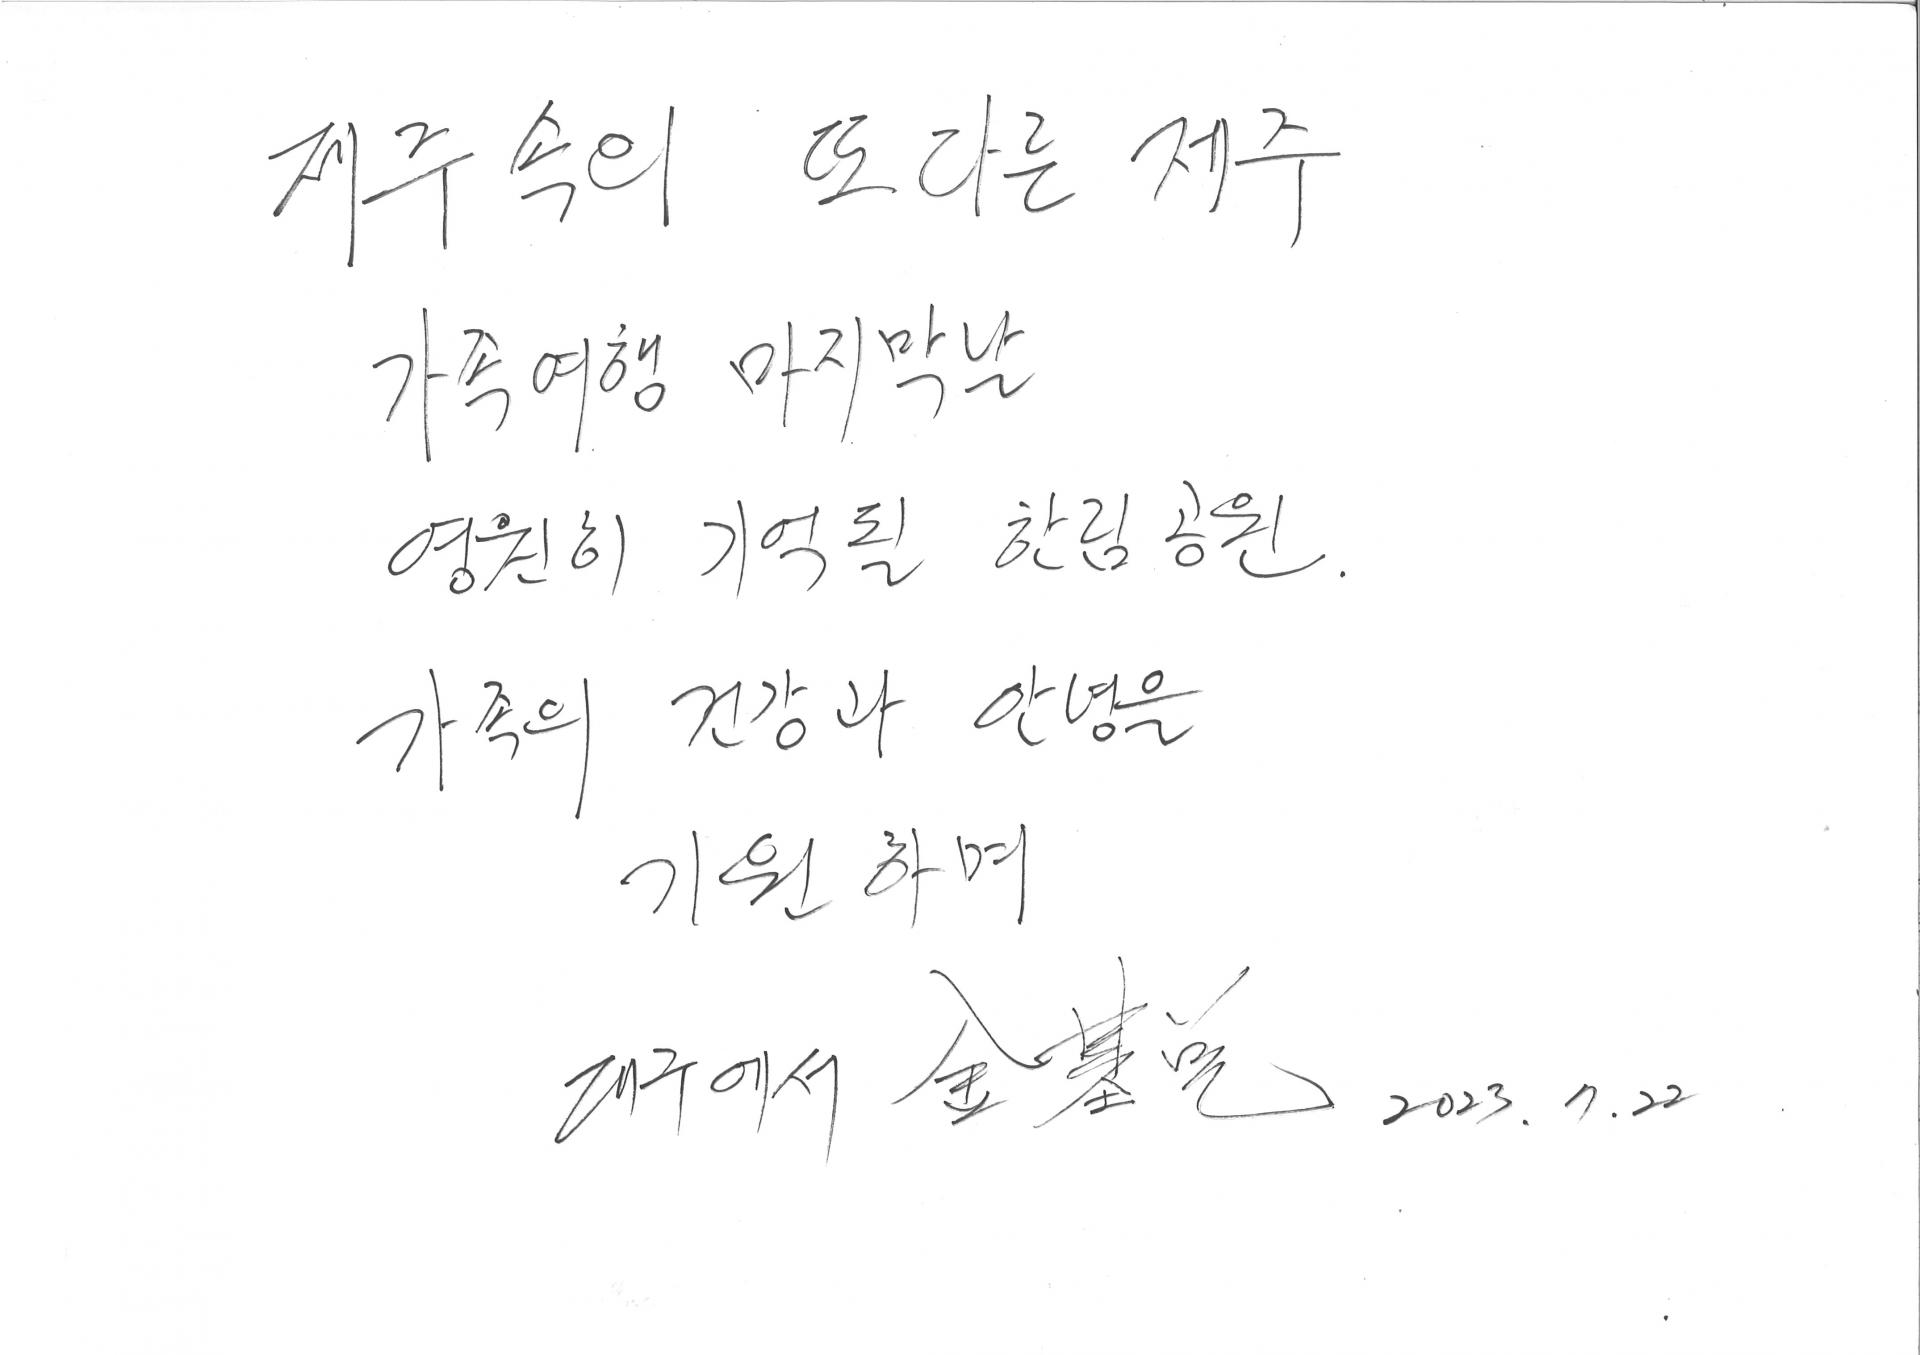 제주속의 또다른 제주
가족여행 마지막날
영원히 기억될 한림공원.
가족의 건강과 안녕을
기원하며
에서 金基 2023. 7. 22